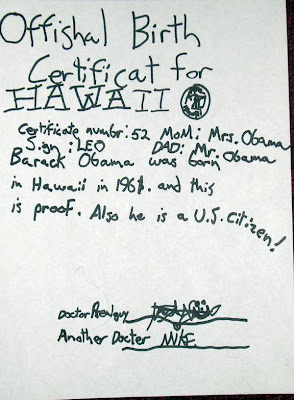 Offishal Birth
Certificat for
HAWAII
Certificate numbr: 52 MoM: Mrs. Obama
Sign: LEO DAD: Mr. Obama
Barack Obama was born
in Hawaii in 1961. and this
is proof. Also he is a U.S. Citizen!
Doctor
Another Docter MIKE